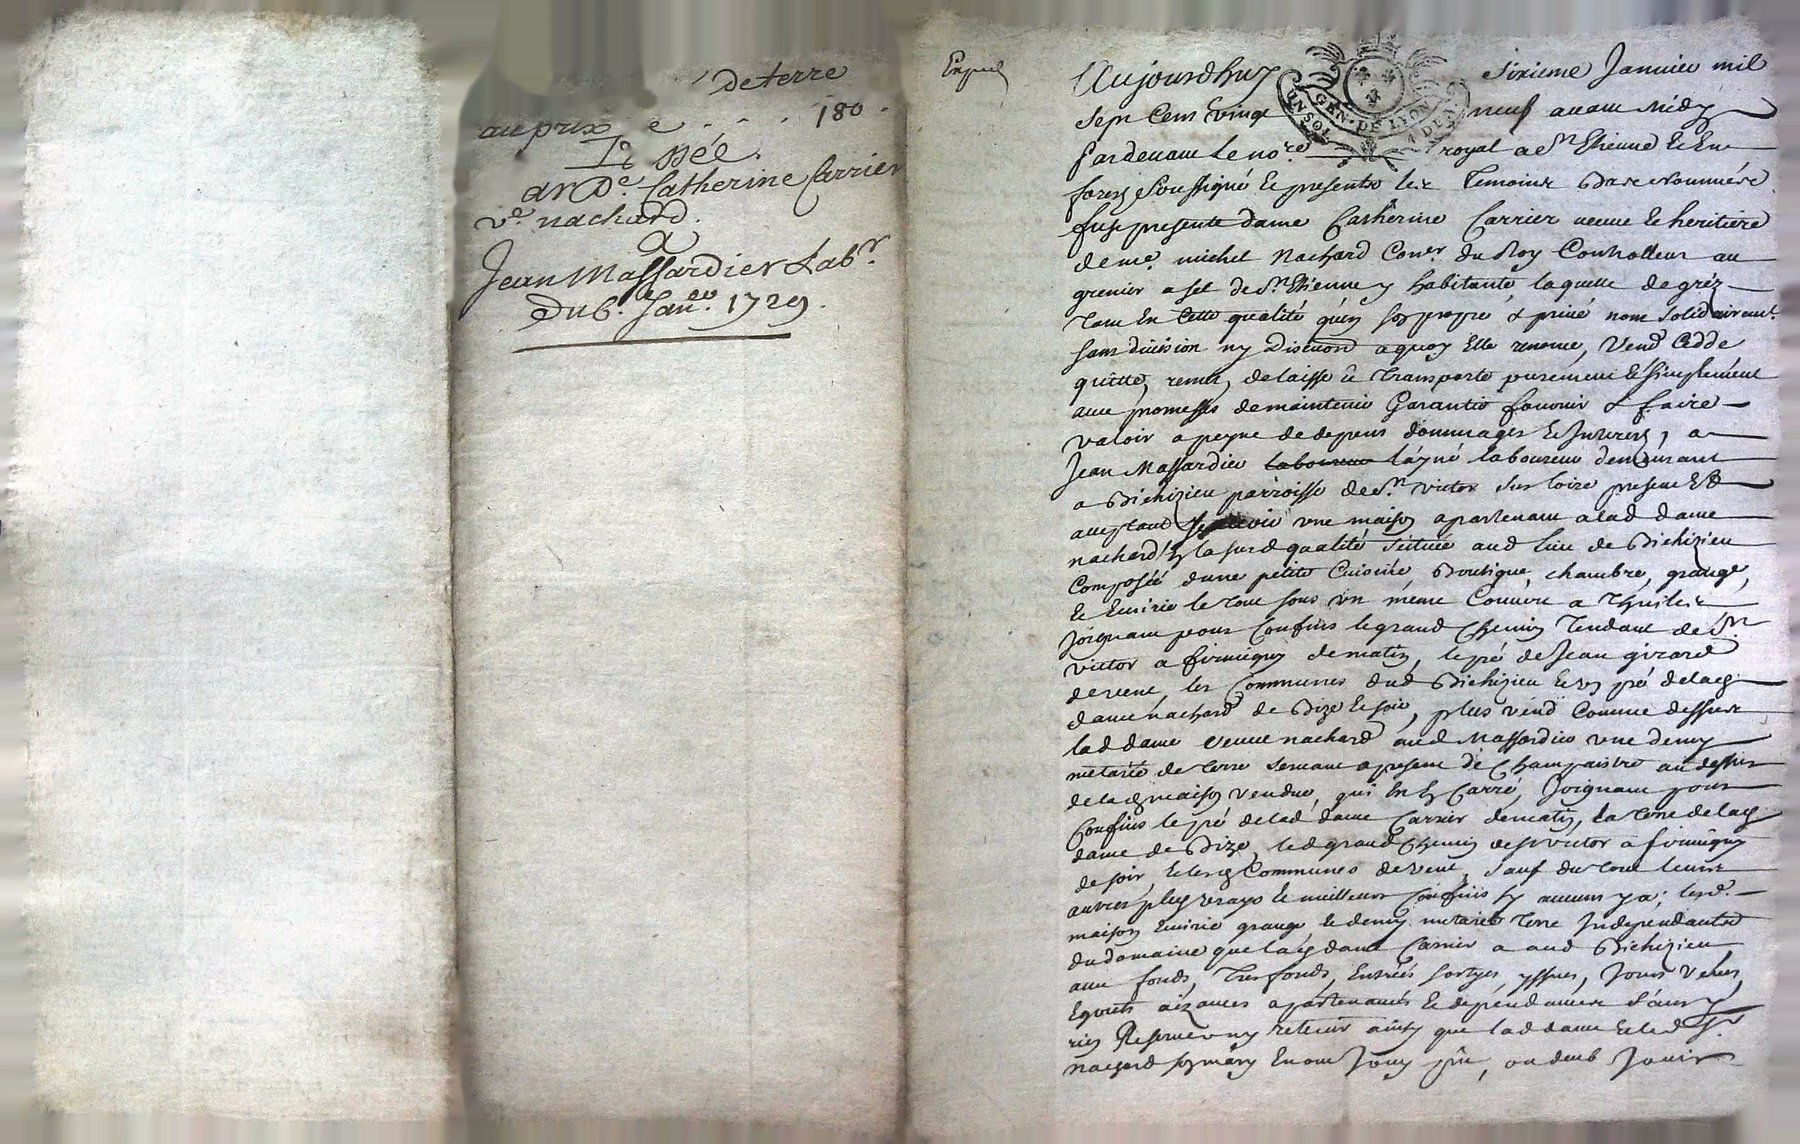 de terre
au prix 180.
ar De. Catherine Carrier
ve. nachard.
a
Jean Massardier Labr.
Du 6. Janer. 1729.
Aujourdhuy sixieme Janvier mil
GEN. DE LYON
UN SOL
sept Cent vingt neuf avant midy
pardevant le nore. royal a St. Etienne En
forest soussigné et presents les temoins Bas nommés
fust presente dame Catherine Carrier veuve et heritiere
de me. michel Nachard Coner. du Roy Controlleur au
grenier a sel de St. Etienne y habitante, laquelle de gré,
tant En Cette qualité qu'en son propre & privé nom solidairemt.
sans division ny Discution a quoy Elle renonce, Vend Cedde
quitte, remet, delaisse et transporte purement et simplement
avec promesses de maintenir Garantir fournir & faire
valoir a peyne de depens dommages et Interets, a
Jean Massardier laboureur l'ayné laboureur demeurant
a Bichizieu parroisse de St. victor sur loire present et
acceptant une maison apartenant a lad dame
nachard En la susd qualité scittuée aud lieu de Bichizieu
Composée d'une petite Cuisine, Boutique, chambre, grange,
et Ecuirie le tout sous un méme Couvert a Thuiles
Joignant pour Confins le grand Chemin tendant de St.
victor a firminy de matin, le pré de Jean girard
de vent, les Communes dud Bichizieu et un pré de lad
dame nachard de Bize et soir, plus vend Comme dessus
lad dame veuve nachard aud Massardier une demy
metarée de terre a present de Champaistre au dessus
de lad maison vendue, qui En Carré, Joignant pour
Confins le pré de lad dame Carrier de matin, la terre de lad
dame de Bize, led grand Chemin de st victor a firminy
de soir, et les Communes de vent, sauf du tout leurs
autres plus vrays et meilleurs Confins sy aucuns y a; lesd.
maison Ecuirie grange, et demy metarée terre Independante
du domaine que lad dame Carrier a aud Bichizieu
avec fonds, tresfonds, Entrées sortyes, yssues, Jours Veues,
Egouts aizances apartenances et dependances sans y
rien Reserver ny retenir ainsy que lad dame et led Sr.
nachard son mary En ont Jouy, ou deub Jouir